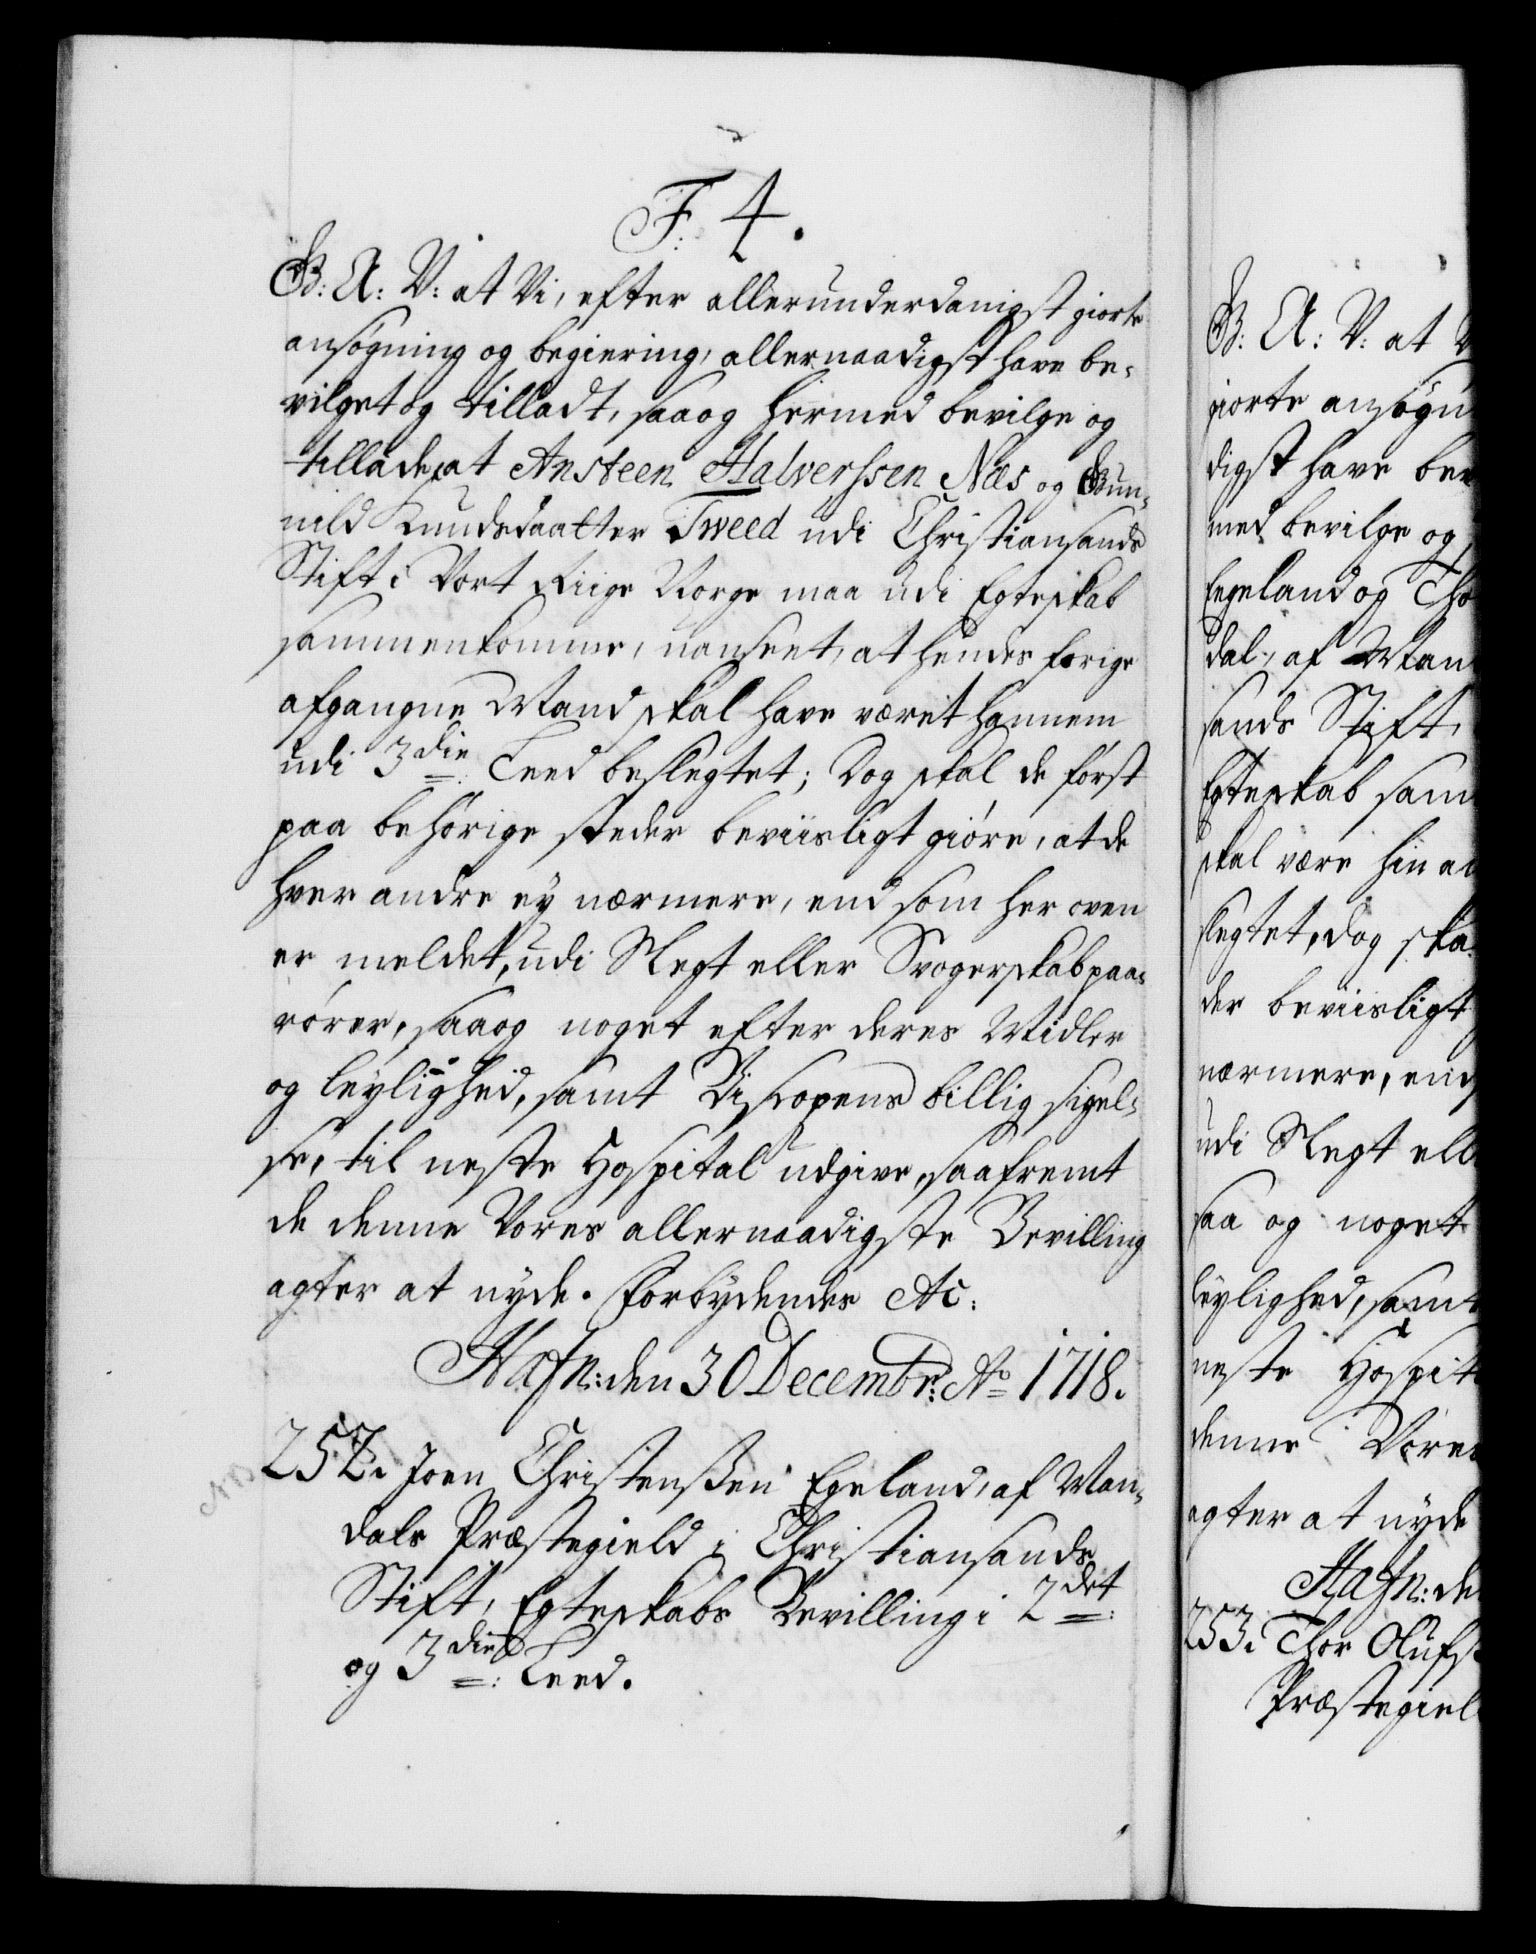 F. 4.
G: A: V: at Vi, efter allerunderdanigst giorte
ansøgning og begiering, allernaadigst have be-
vilget og tilladt, saa og hermed bevilge og
tillade, at Ansteen Halverssen Næs og Gun-
nild Knudsdaatter Tweed udi Christiansands
Stift i Vort Riige Norge maa udi Egteskab
sammenkomme, uanseet, at hendes forige
afgangne Mand skal have været hannem
udi 3die Leed beslegtet; Dog skal de først
paa behörige steder beviisligt giøre, at de
hver andre ey nærmere, end som her oven
er meldet, udi Slegt eller Svogerskab paa-
rører, saa og noget efter deres Midler
og leylighed, samt Biscopens billig sigel-
se, til neste Hospital udgive, saafremt
de denne Vores allernaadigste Bevilling
agter at nyde. Forbydendes Ac:
Hafn: den 30 Decembr: Ao 1718.
252. Joen Christenßen Egeland, af Man-
dals Præstegield i Christiansands
Stift, Egteskabs Bevilling i 2det
og 3die Leed.
G: A: V: at V
giorte ansøgn
digst have bev
med bevilge og
Egeland og Tho
dal, af Man
sands Stift,
Egteskab sam
skal være hin an
slegtet, dog ska
der beviisligt
nærmere, end
udi Slegt elle
saa og noget
leylighed, samt
neste Hospit
denne Vores
agter at nyde
Hafn: de
253. Thor Olufs
Præstegiel